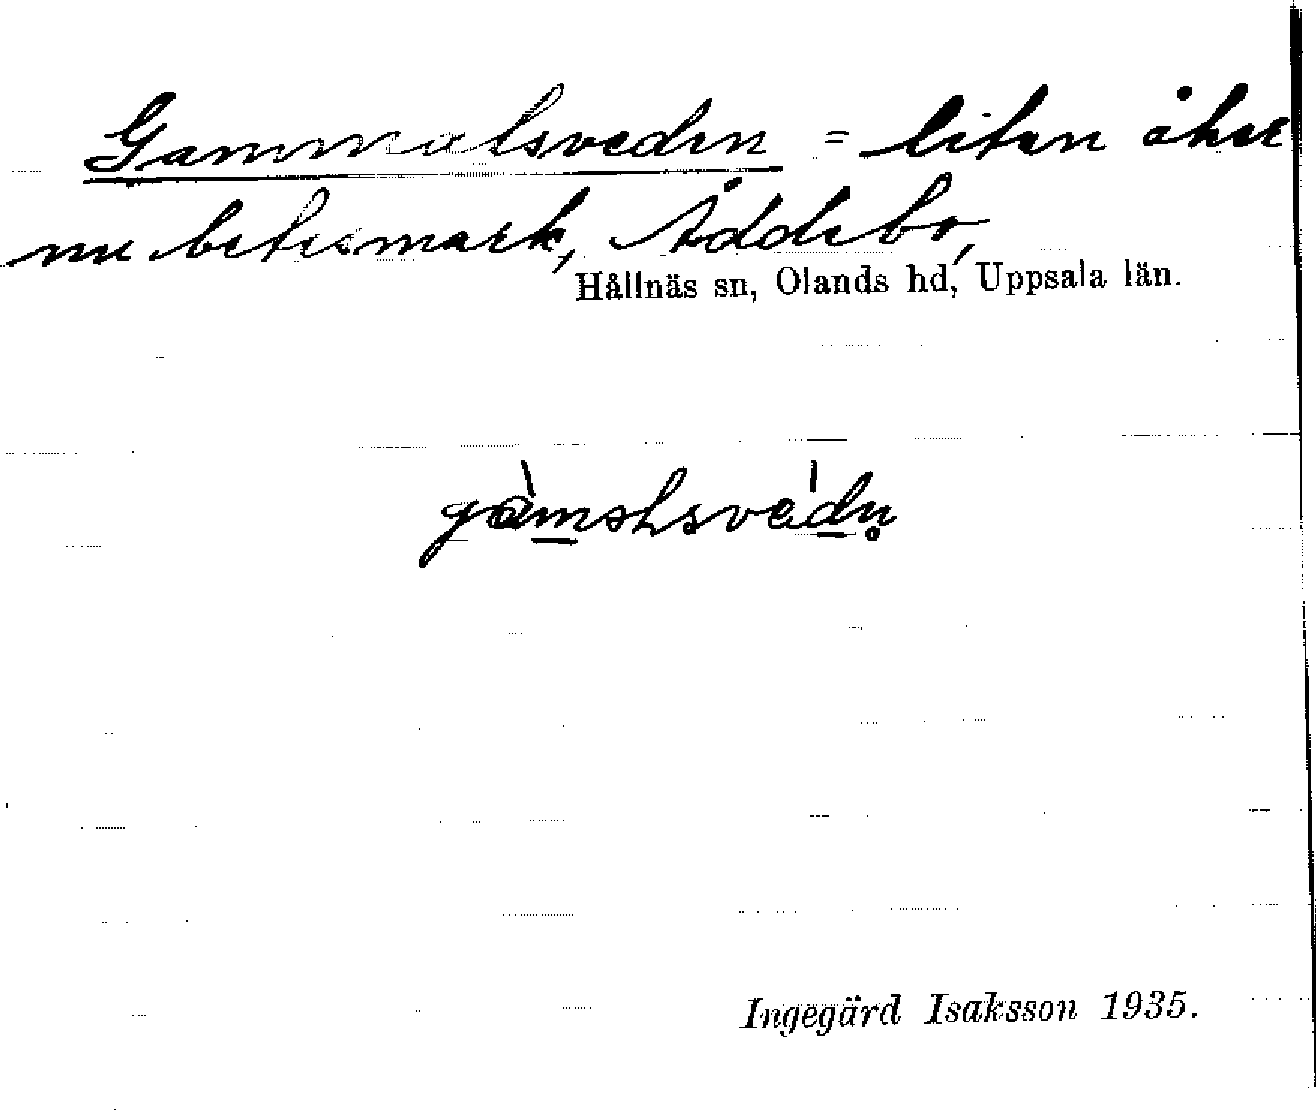 Gammalsveden = liten åker
nu betesmark, Åddebo,
Hållnäs sn, Olands hd, Uppsala län.
Ingegärd Isaksson 1935.